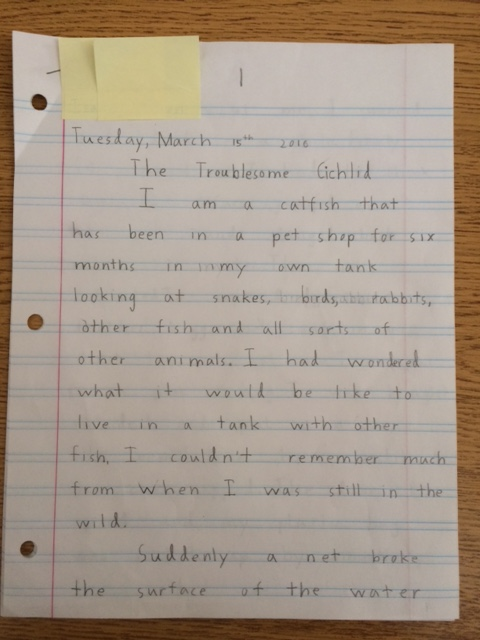 1
Tuesday, March 15th 2016
The Troublesome Cichlid
I am a catfish that
has been in a pet shop for six
months in my own tank
looking at snakes, birds, rabbits,
other fish and all sorts of
other animals. I had wondered
what it would be like to
live in a tank with other
fish, I couldn't remember much
from when I was still in the
wild.
Suddenly a net broke
the surface of the water